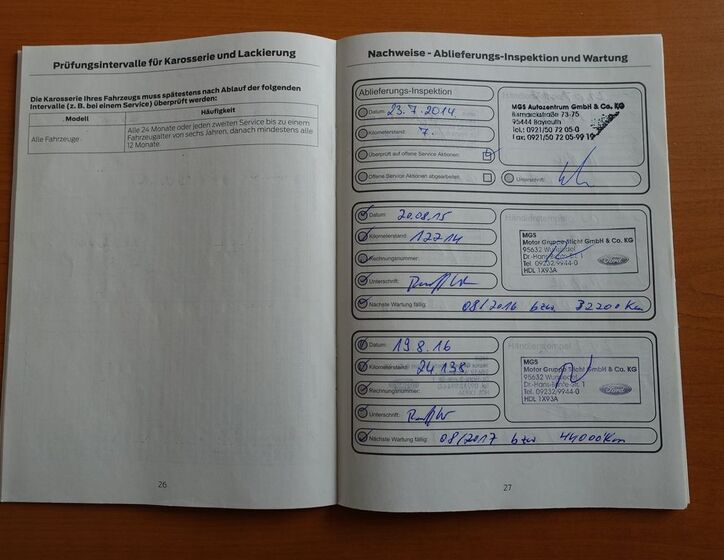 Prüfungsintervalle für Karosserie und Lackierung
Die Karosserie Ihres Fahrzeugs muss spätestens nach Ablauf der folgenden
Intervalle (z. B. bei einem Service) überprüft werden:
Modell
Häufigkeit
Alle Fahrzeuge
Alle 24 Monate oder jeden zweiten Service bis zu einem
Fahrzeugalter von sechs Jahren, danach mindestens alle
12 Monate.
26
Nachweise - Ablieferungs-Inspektion und Wartung
Ablieferungs-Inspektion
Datum: 23.7.2014
Kilometerstand: 7.
Überprüft auf offene Service Aktionen:
Offene Service Aktionen abgearbeitet:
MGS Autozentrum GmbH & Co. KG
Bismarckstraße 73-75
95444 Bayreuth
Tel.: 0921/50 72 05-0
Fax: 0921/50 72 05-99 19
Unterschrift:
Datum: 20.08.15
Kilometerstand: 12214
Rechnungsnummer:
Unterschrift:
Nächste Wartung fällig: 08/2016 bzw 32200 Km
Händlerstempel
MGS
Motor Gruppe Sticht GmbH & Co. KG
95632 Wunsiedel
Tel. 09232/9944-0
HDL 1X93A
Ford
Datum: 19.8.16
Kilometerstand: 24138
Rechnungsnummer:
Unterschrift:
Nächste Wartung fällig: 08/2017 bzw 44000 Km
Händlerstempel
MGS
Motor Gruppe Sticht GmbH & Co. KG
95632 Wunsiedel
Tel. 09232/9944-0
HDL 1X93A
Ford
27